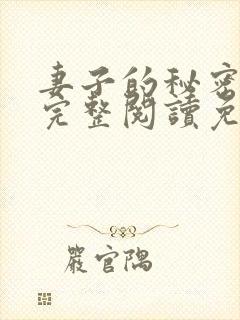 妻子的秘密
完整閱讀免
嚴官隅